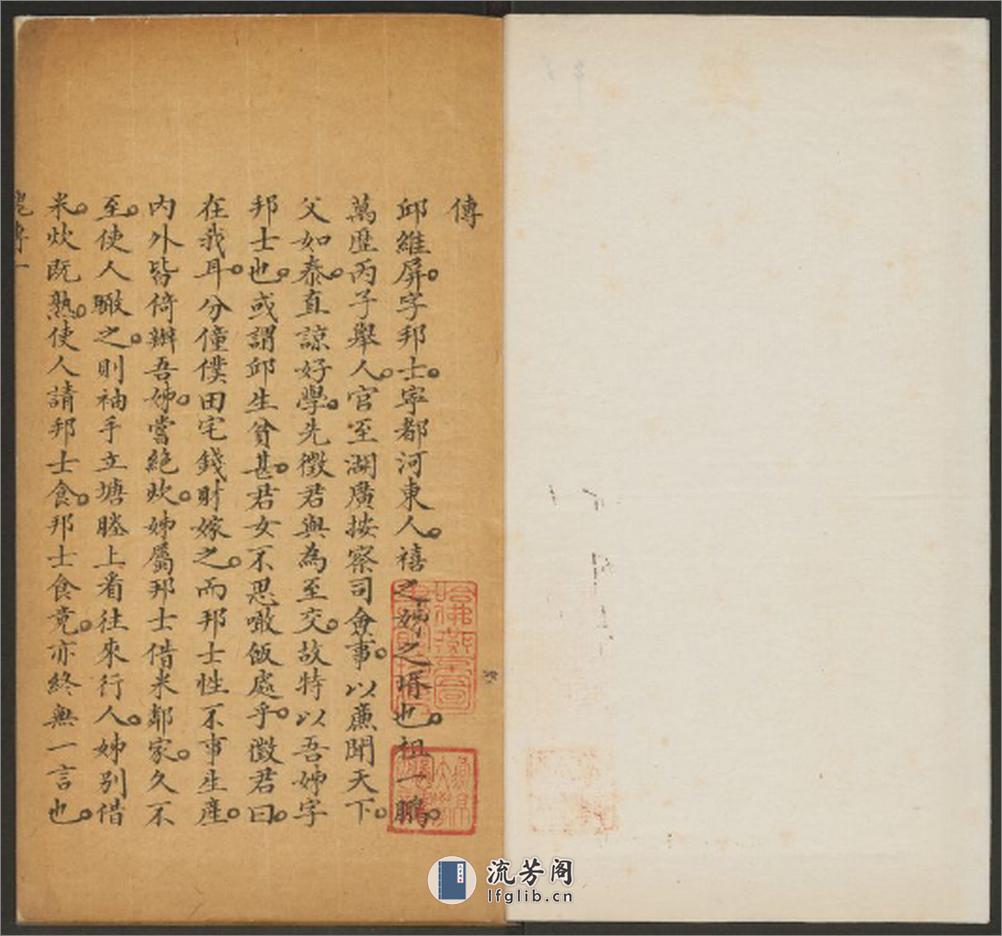 傳
邱維屏字邦士寧都河東人禧之姊之壻也祖一鵬
萬歷丙子舉人官至湖廣按察司僉事以廉聞天下
父如泰直諒好學先徵君與為至交故特以吾姊字
邦士也或謂邱生貧甚君女不思噉飯處乎徵君曰
在我耳分僮僕田宅錢財嫁之而邦士性不事生產
內外皆倚辦吾姊嘗絕炊姊屬邦士借米鄰家久不
至使人瞰之則袖手立塘塍上看往來行人姊別借
米炊既熟使人請邦士食邦士食竟亦終無一言也
傳一
流芳阁
lfglib.cn